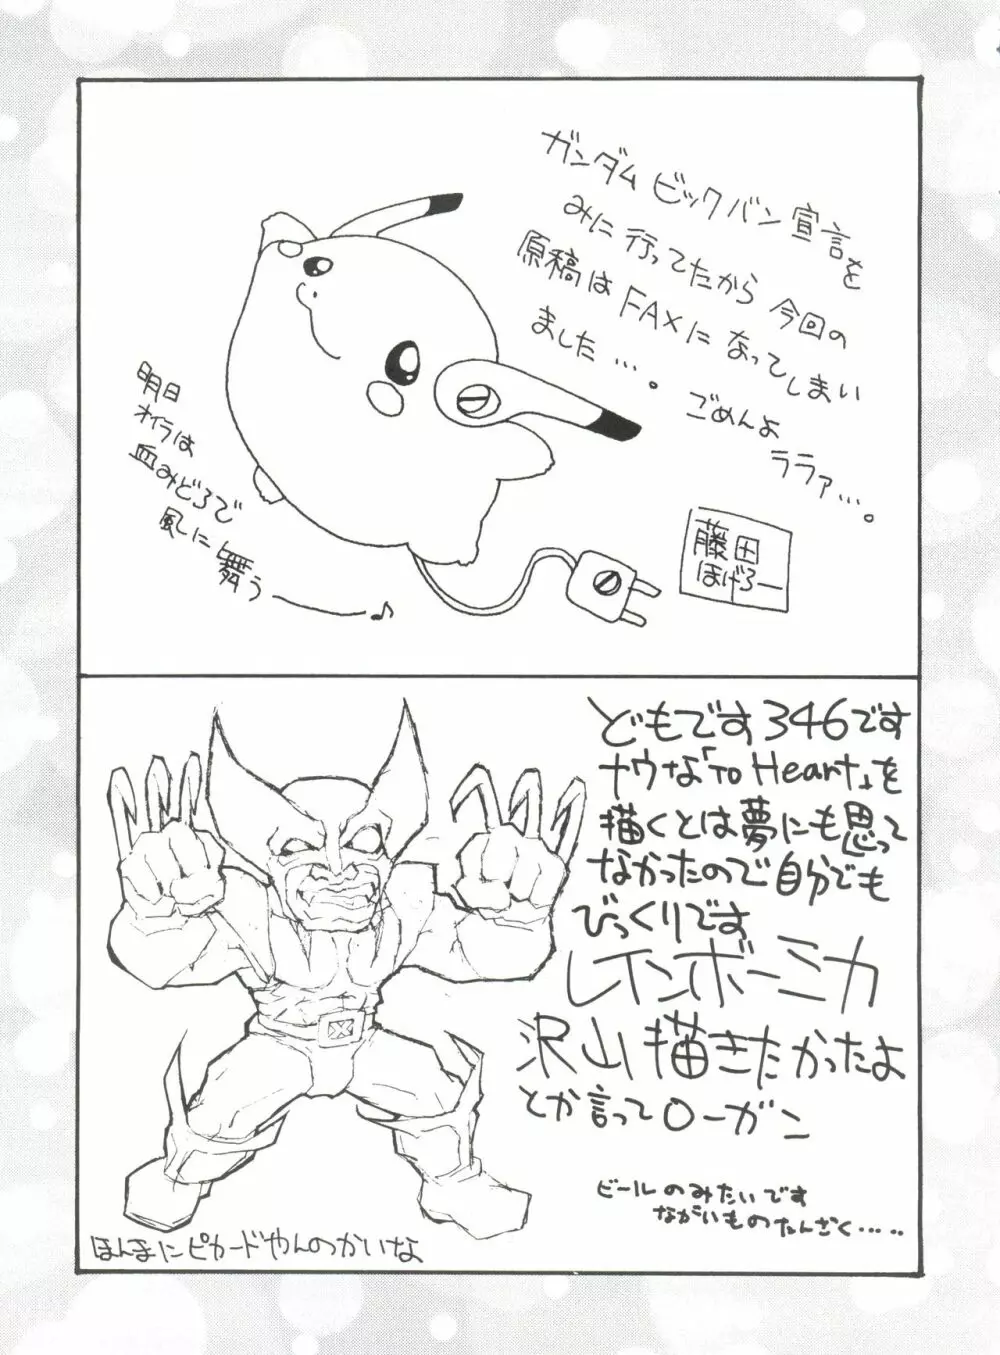 ガンダム ビックバン宣言を
みに行ってたから 今回の
原稿はFAXになってしまい
ました…。 ごめんよ
ララァ…。
明日
オイラは
血みどろで
風に
舞う
藤田
ほげろー
どもです346です
ナウな「To Heart」を
描くとは夢にも思って
なかったので自分でも
びっくりです
レインボーミカ
沢山描きたかったよ
とか言ってローガン
ビールのみたいです
ながいものたんざく‥‥
ほんまにピカードやんのかいな